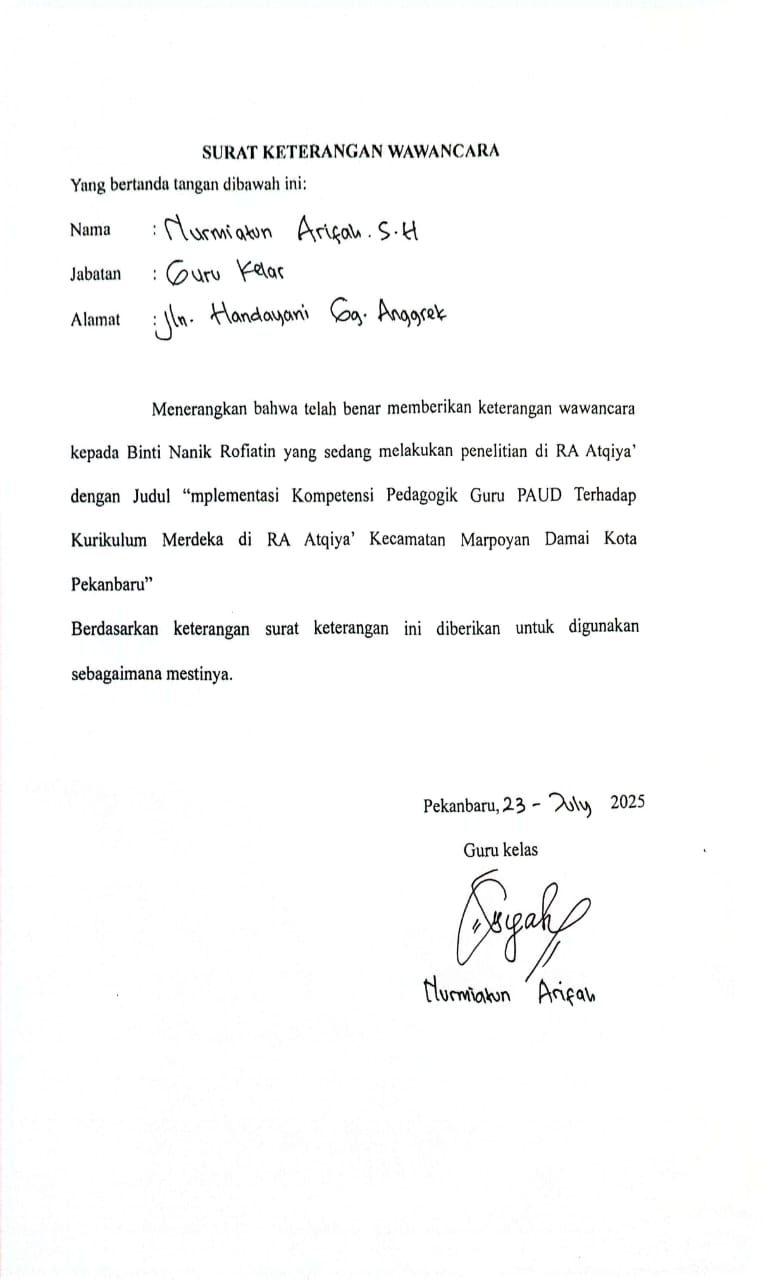 SURAT KETERANGAN WAWANCARA
Yang bertanda tangan dibawah ini:
Nama : Nurmiatun Arifah. S.H
Jabatan : Guru Kelas
Alamat : Jln. Handayani Gg. Anggrek
Menerangkan bahwa telah benar memberikan keterangan wawancara
kepada Binti Nanik Rofiatin yang sedang melakukan penelitian di RA Atqiya’
dengan Judul “mplementasi Kompetensi Pedagogik Guru PAUD Terhadap
Kurikulum Merdeka di RA Atqiya’ Kecamatan Marpoyan Damai Kota
Pekanbaru”
Berdasarkan keterangan surat keterangan ini diberikan untuk digunakan
sebagaimana mestinya.
Pekanbaru, 23 - July 2025
Guru kelas
Nurmiatun Arifah